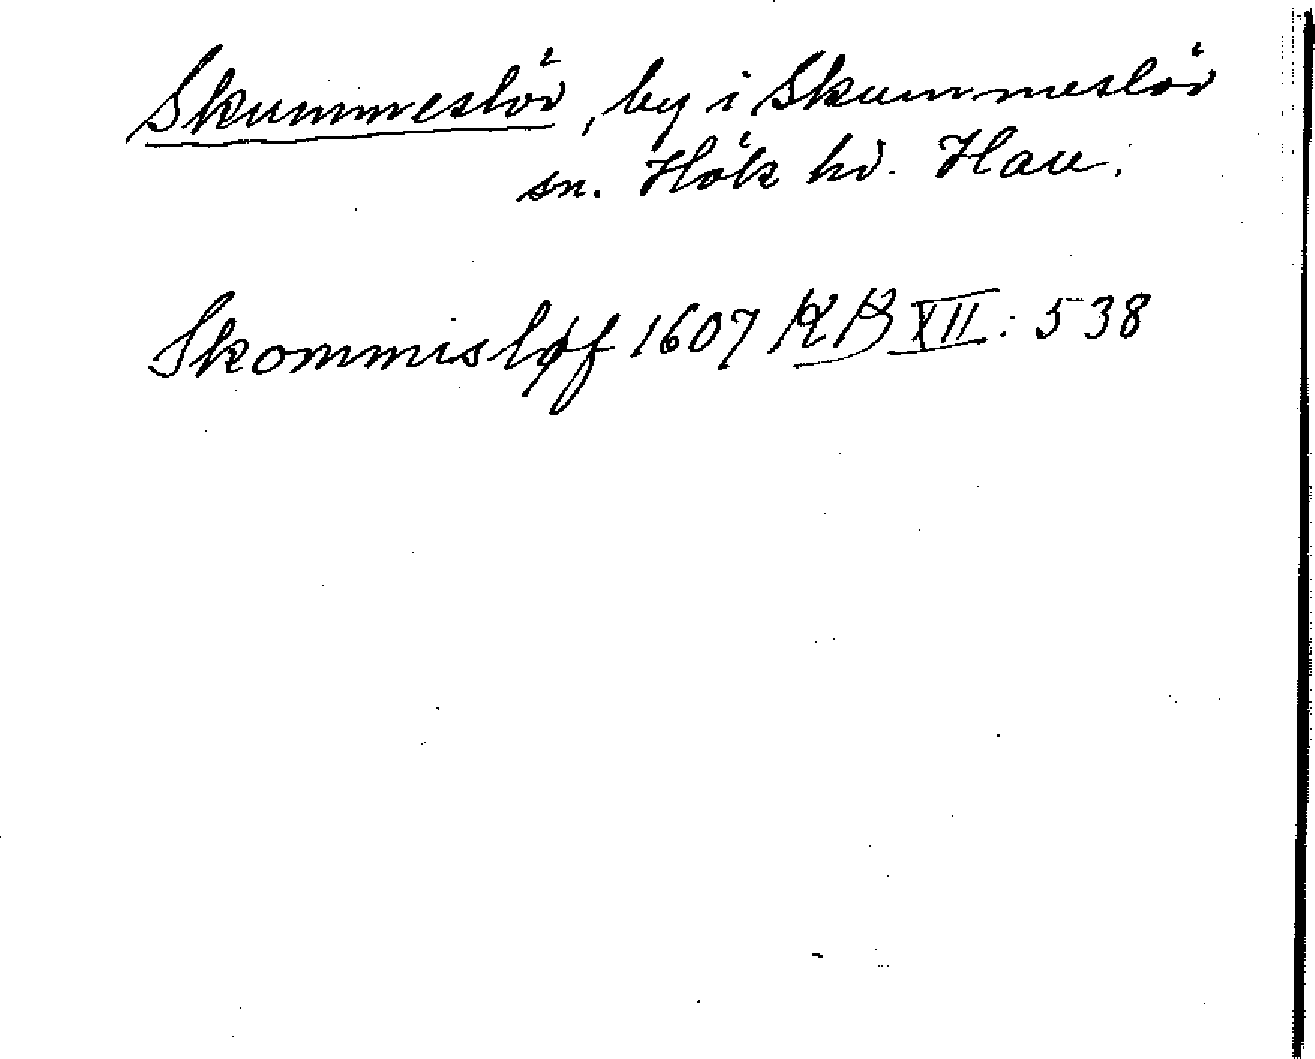 Skummeslöv, by i Skummeslöv
sn. Hök hd. Hall.
Skommisløf 1607 KB XII: 538